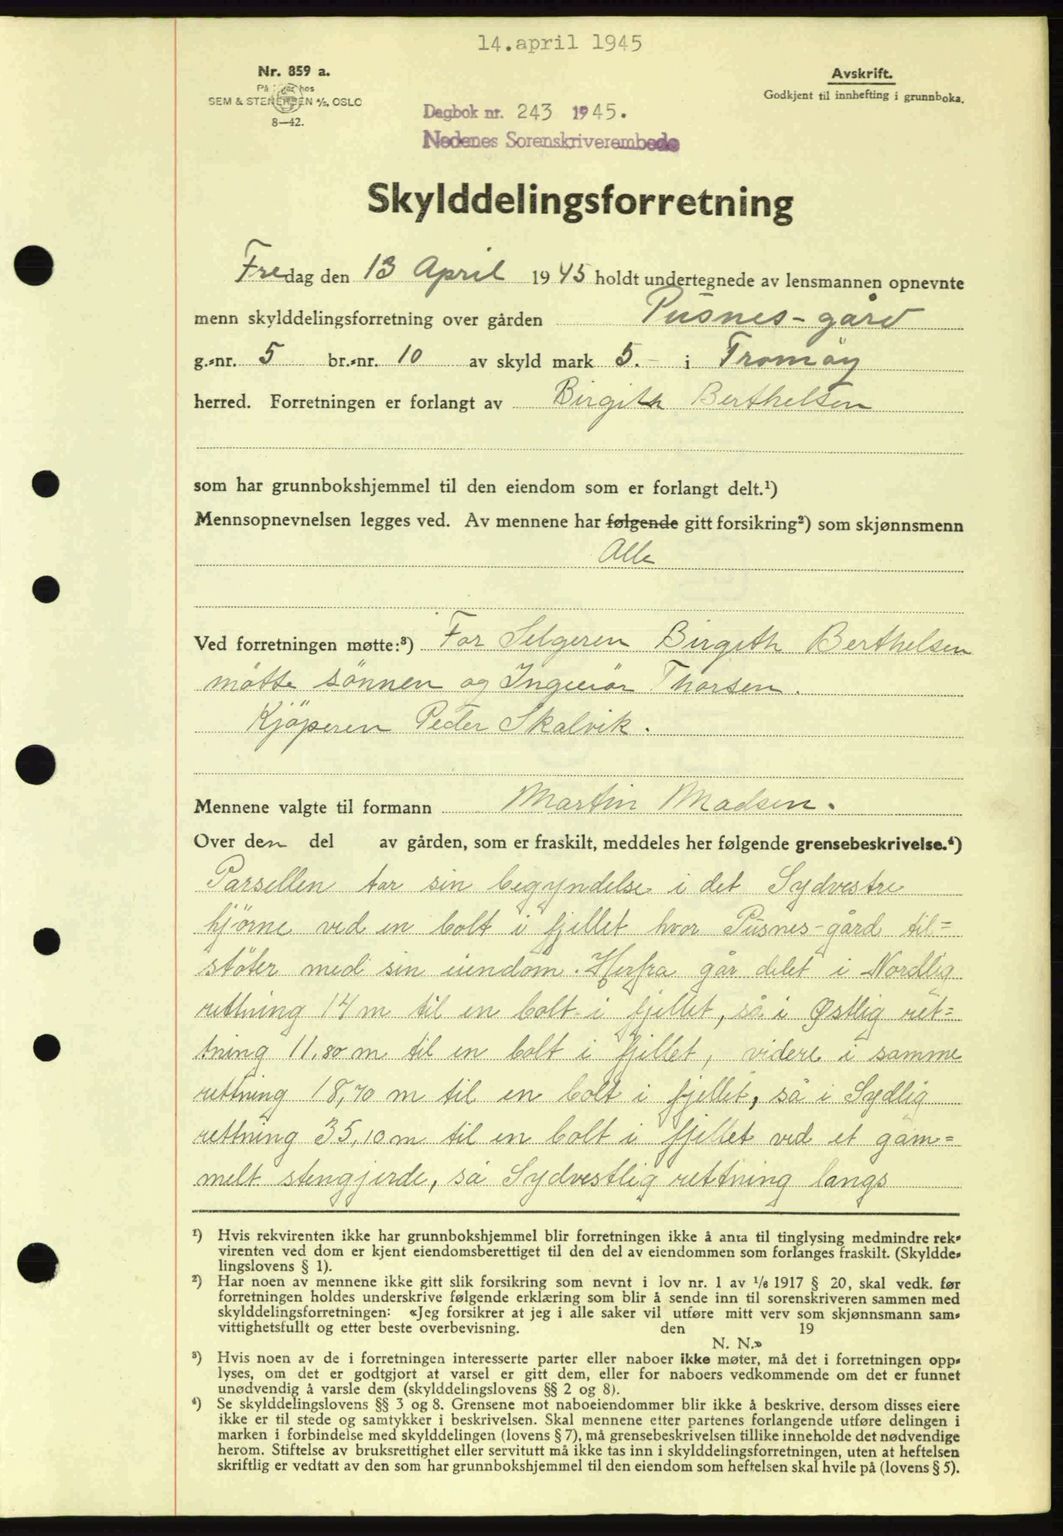 14. april 1945
Nr. 859 a.
SEM & STENERSEN A/S, OSLO
8—42.
Avskrift.
Godkjent til innhefting i grunnboka.
Dagbok nr. 243 1945.
Nedenes Sorenskriverembede
Skylddelingsforretning
Fredag den 13 April 1945 holdt undertegnede av lensmannen opnevnte
menn skylddelingsforretning over gården Pusnes-gård
g.-nr. 5 br.-nr. 10 av skyld mark 5.- i Tromøy
herred. Forretningen er forlangt av Birgith Berthelsen
som har grunnbokshjemmel til den eiendom som er forlangt delt.¹)
Mennsopnevnelsen legges ved. Av mennene har følgende gitt forsikring²) som skjønnsmenn
Alle
Ved forretningen møtte:³) For Selgeren Birgith Berthelsen
møtte sønnen og Ingeniør Thorsen.
Kjøperen Peder Skalvik.
Mennene valgte til formann Martin Madsen.
Over den del av gården, som er fraskilt, meddeles her følgende grensebeskrivelse.⁴)
Parsellen tar sin begyndelse i det Sydvestre
hjørne ved en bolt i fjellet hvor Pusnes-gård til=
støter med sin eiendom. Herfra går delet i Nordlig
rettning 14 m til en bolt i fjellet, så i Østlig ret=
tning 11,80 m til en bolt i fjellet, videre i samme
rettning 18,70 m til en bolt i fjellet, så i Sydlig
rettning 35,10 m til en bolt i fjellet ved et gam=
melt stengjerde, så Sydvestlig rettning langs
¹) Hvis rekvirenten ikke har grunnbokshjemmel blir forretningen ikke å anta til tinglysing medmindre rek-
virenten ved dom er kjent eiendomsberettiget til den del av eiendommen som forlanges fraskilt. (Skyldde-
lingslovens § 1).
²) Har noen av mennene ikke gitt slik forsikring som nevnt i lov nr. 1 av 1/6 1917 § 20, skal vedk. før
forretningen holdes underskrive følgende erklæring som blir å sende inn til sorenskriveren sammen med
skylddelingsforretningen: «Jeg forsikrer at jeg i alle saker vil utføre mitt verv som skjønnsmann sam-
vittighetsfullt og etter beste overbevisning. den 19
N. N.»
³) Hvis noen av de i forretningen interesserte parter eller naboer ikke møter, må det i forretningen opp-
lyses, om det er godtgjort at varsel er gitt dem, eller for naboers vedkommende om det er funnet
unødvendig å varsle dem (skylddelingslovens §§ 2 og 8).
⁴) Se skylddelingslovens §§ 3 og 8. Grensene mot naboeiendommer blir ikke å beskrive, dersom disses eiere
ikke er til stede og samtykker i beskrivelsen. Skal mennene etter partenes forlangende utføre delingen i
marken i forbindelse med skylddelingen (lovens § 7), må grensebeskrivelsen tillike inneholde det nødvendige
herom. Stiftelse av bruksrettighet eller servitutt må ikke tas inn i skylddelingsforretningen, uten at heftelsen
skriftlig er vedtatt av den som har grunnbokshjemmel til den eiendom som heftelsen skal hvile på (lovens § 5).